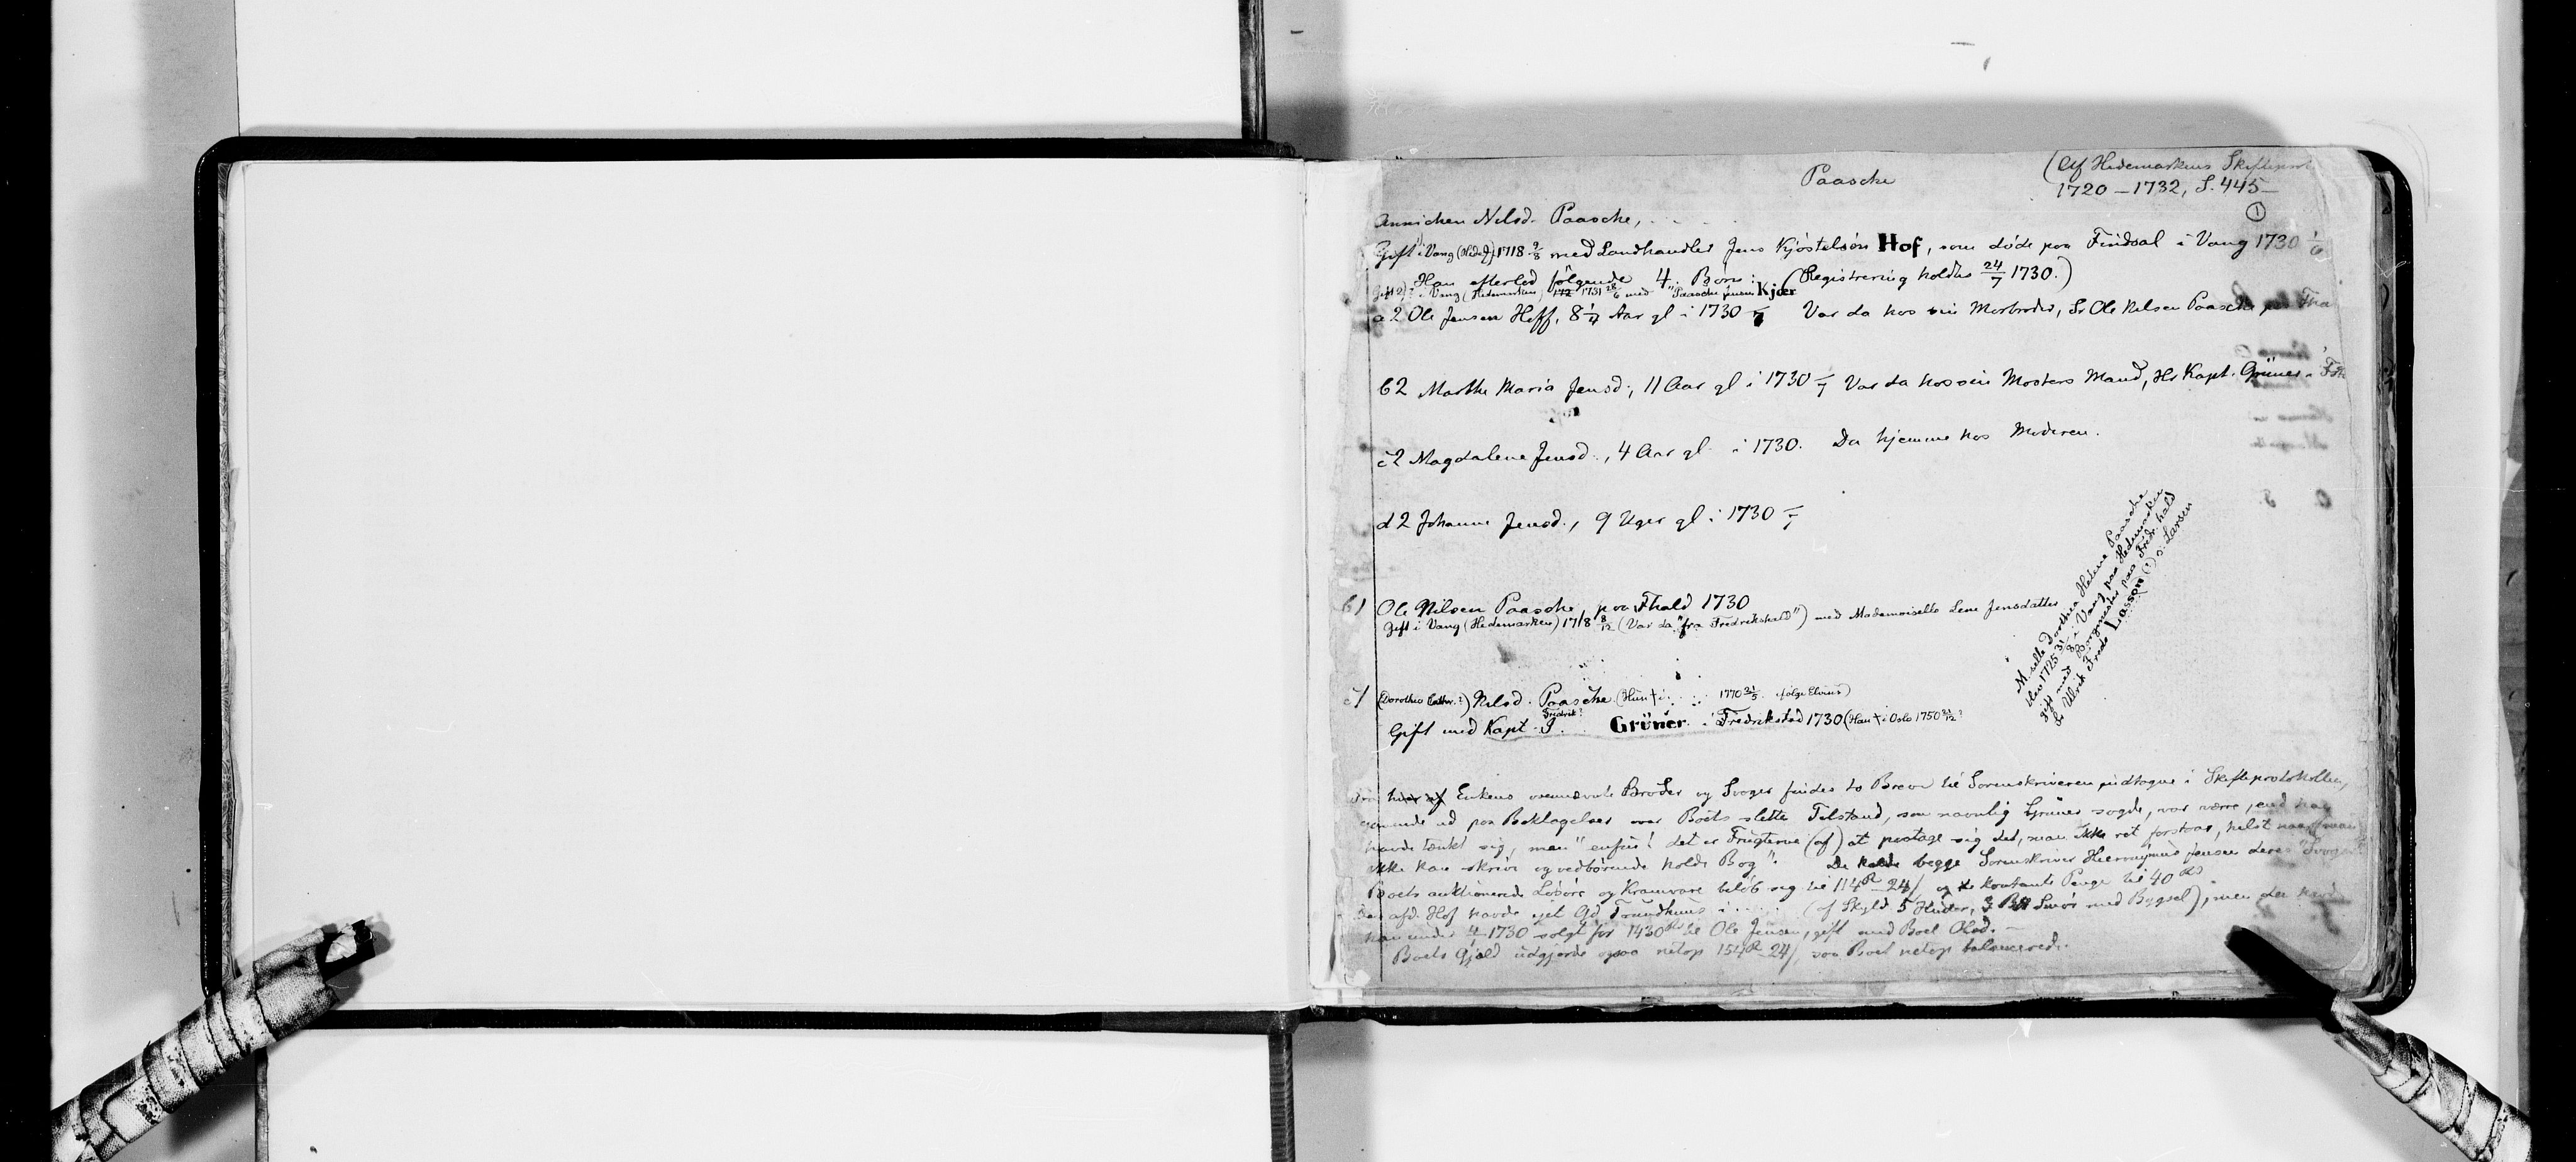 Paasche
(Af Hedemarkens Skifteprot.
1720–1732, S. 445–
1
Annichen Nilsd. Paasche, . . . .
Gift 1) i Vang (Hedem.) 1718 9/8 med Landhandler Jens Kjöstelsön Hof, som döde paa Findsal i Vang 1730 1/6
Han efterlod fölgende 4 Börn: (Registrering holdtes 24/7 1730.)
Gift 2) i Vang (Hedemarken) 1731 28/6 med "Paasche Jensen Kjær
a2 Ole Jensen Hoff, 8 1/4 Aar gl i 1730 –/7 Var da hos sin Morbroder, Sr Ole Nilsen Paasche paa Fha
b2 Marthe Maria Jensd., 11 Aar gl i 1730 –/7 Var da hos sin Mosters Mand, Hr Kapt. Grüner i Fr
c2 Magdalene Jensd., 4 Aar gl. i 1730. Da hjemme hos Moderen.
d2 Johanne Jensd., 9 Uger gl i 1730 –/7
b1 Ole Nilsen Paasche, paa Fhald 1730
Gift i Vang (Hedemarken) 1718 8/12 (Var da "fra Fredrikshald") med Mademoiselle Lene Jensdatter
M.selle Dorthea Helene Paasche
blev 1725 31/8 i Vang paa Hedemarken
gift med Borgmester paa Fredr.hald
Sr Ulrik Fredr Lasson (!) o: Larsen
c1 (Dorothea Cathr.?) Nilsd. Paasche (Hun † i . . . . 1770 21/5 ifölge Elvius)
Gift med Kapt. J. Fredrik? Grüner i Fredrikstad 1730 (Han † i Oslo 1750 21/12?
Fra hver af Enkens ovennævnte Broder og Svoger findes to Breve til Sorenskriveren indtagne i Skifteprotokollen,
gaaende ud paa Beklagelser over Boets slette Tilstand, som navnlig Grüner sagde, var værre, end han
havde tænkt sig, men "enfin! det er Frugterne (af) at paatage sig det, man ikke ret forstaar, helst naar man
ikke kan skrive og vedbörende holde Bog". De kalde begge Sorenskriver Hieronÿmus Jensen deres "Svoger"
Boets auktionerede Lösöre og Kramvare belöb sig til 114 R 24/, og de kontante Penge til 40 Rd
Den afd. Hof havde ejet Gd Trundhuus i . . . . (af Skyld 5 Huder, 3 Smör med Bygsel), men den havde
han under 4/– 1730 solgt for 1430 Rd til Ole Jensen, gift med Boel Olsd. –
Boets Gjæld udgjorde ogsaa netop 154 R 24/, saa Boet netop balancerede.